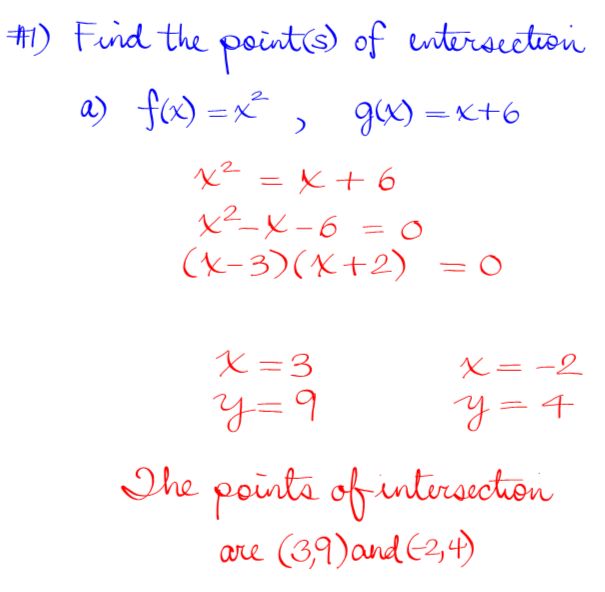 #1) Find the point(s) of intersection
a) f(x) = x² , g(x) = x+6
x² = x + 6
x² - x - 6 = 0
(x-3)(x+2) = 0
x = 3 x = -2
y = 9 y = 4
The points of intersection
are (3,9) and (-2,4)